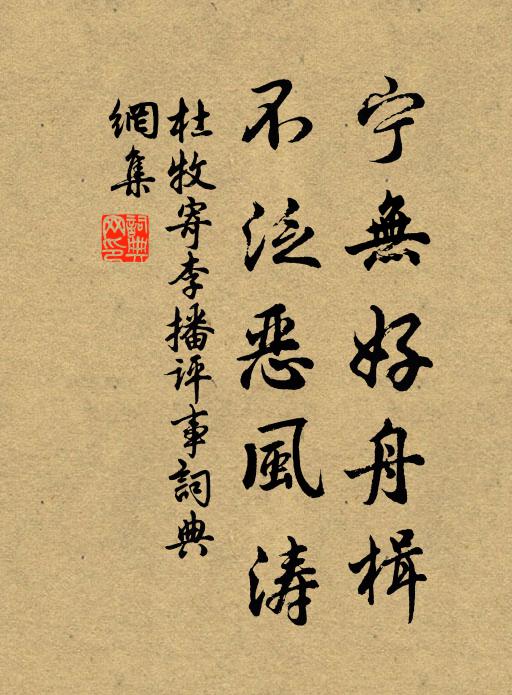 宁無好舟楫
不泛恶風涛
杜牧寄李播评事詞典
網集
詞典
网印